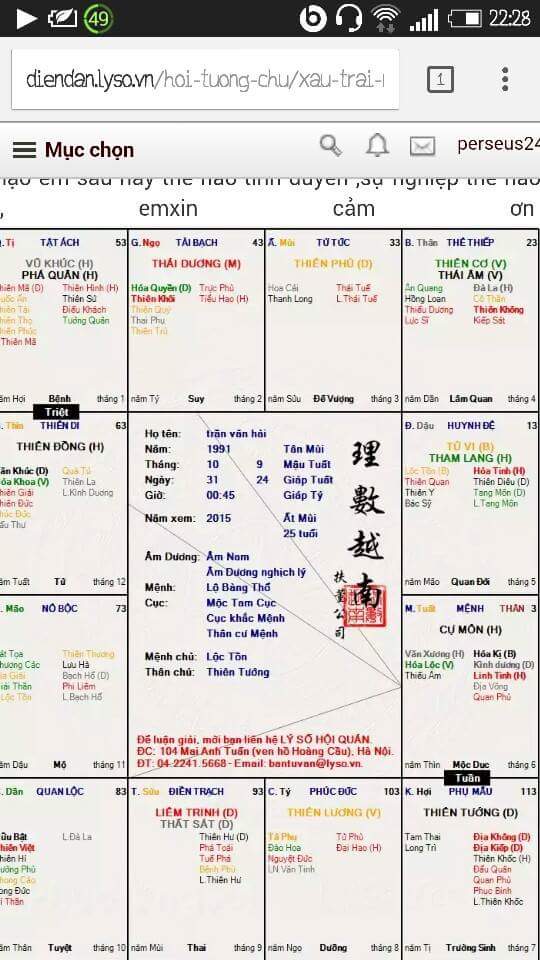 49
22:28
diendan.lyso.vn/hoi-tuong-chu/xau-trai-
1
Mục chọn
perseus24
em sau này thế nào tình duyên ,sự nghiệp thế nào
, emxin cảm ơn
. Tị TẬT ÁCH 53
VŨ KHÚC (H)
PHÁ QUÂN (H)
hiên Mã (D) Thiên Hình (H)
uốc Ấn Thiên Sứ
hiên Tài Điếu Khách
hiên Thọ Tướng Quân
hiên Phúc
Thiên Mã
ăm Hợi Bệnh tháng 1
G. Ngọ TÀI BẠCH 43
THÁI DƯƠNG (M)
Hóa Quyền (D) Trực Phù
Thiên Khôi Tiểu Hao (H)
Thiên Quý
Thai Phụ
Thiên Trù
năm Tý Suy tháng 2
Ấ. Mùi TỬ TỨC 33
THIÊN PHỦ (D)
Hoa Cái Thái Tuế
Thanh Long L.Thái Tuế
năm Sửu Đế Vượng tháng 3
B. Thân THÊ THIẾP 23
THIÊN CƠ (V)
THÁI ÂM (V)
Ân Quang Đà La (H)
Hồng Loan Cô Thần
Thiếu Dương Thiên Không
Lực Sĩ Kiếp Sát
năm Dần Lâm Quan tháng 4
Triệt
. Thìn THIÊN DI 63
THIÊN ĐỒNG (H)
ăn Khúc (D) Quả Tú
Hóa Khoa (V) Thiên La
hiên Giải L.Kình Dương
hiên Đức
húc Đức
ấu Thư
ăm Tuất Tử tháng 12
Họ tên: trần văn hải
Năm: 1991 Tân Mùi
Tháng: 10 9 Mậu Tuất
Ngày: 31 24 Giáp Tuất
Giờ: 00:45 Giáp Tý
Năm xem: 2015 Ất Mùi
25 tuổi
Âm Dương: Âm Nam
Âm Dương nghịch lý
Mệnh: Lộ Bàng Thổ
Cục: Mộc Tam Cục
Cục khắc Mệnh
Thân cư Mệnh
Mệnh chủ: Lộc Tồn
Thân chủ: Thiên Tướng
理數越南
Để luận giải, mời bạn liên hệ LÝ SỐ HỘI QUÁN.
ĐC: 104 Mai Anh Tuấn (ven hồ Hoàng Cầu), Hà Nội.
ĐT: 04.2241.5668 - Email: bantuvan@lyso.vn.
Đ. Dậu HUYNH ĐỆ 13
TỬ VI (B)
THAM LANG (H)
Lộc Tồn (B) Hỏa Tinh (H)
Thiên Quan Thiên Diêu (D)
Thiên Y Tang Môn (D)
Bác Sỹ L.Tang Môn
năm Mão Quan Đới tháng 5
. Mão NÔ BỘC 73
át Tọa Thiên Thương
hượng Các Lưu Hà
ịa Giải Bạch Hổ (D)
iải Thần Phi Liêm
. Lộc Tồn L.Bạch Hổ
ăm Dậu Mộ tháng 11
M. Tuất MỆNH THÂN 3
CỰ MÔN (H)
Văn Xương (H) Hóa Kị (B)
Hóa Lộc (V) Kình dương (D)
Thiếu Âm Linh Tinh (H)
Địa Võng
Quan Phù
năm Thìn Mộc Dục tháng 6
Tuần
. Dần QUAN LỘC 83
ữu Bật L.Đà La
hiên Việt
hiên Hỉ
ường Phù
hong Cáo
ong Đức
ỉ Thần
ăm Thân Tuyệt tháng 10
T. Sửu ĐIỀN TRẠCH 93
LIÊM TRINH (D)
THẤT SÁT (D)
Thiên Hư (D)
Phá Toái
Tuế Phá
Bệnh Phù
L.Thiên Hư
năm Mùi Thai tháng 9
C. Tý PHÚC ĐỨC 103
THIÊN LƯƠNG (V)
Tả Phụ Tử Phù
Đào Hoa Đại Hao (H)
Nguyệt Đức
LN Văn Tinh
năm Ngọ Dưỡng tháng 8
K. Hợi PHỤ MẪU 113
THIÊN TƯỚNG (D)
Tam Thai Địa Không (D)
Long Trì Địa Kiếp (D)
Thiên Khốc (H)
Đẩu Quân
Quan Phủ
Phục Binh
L.Thiên Khốc
năm Tị Trường Sinh tháng 7